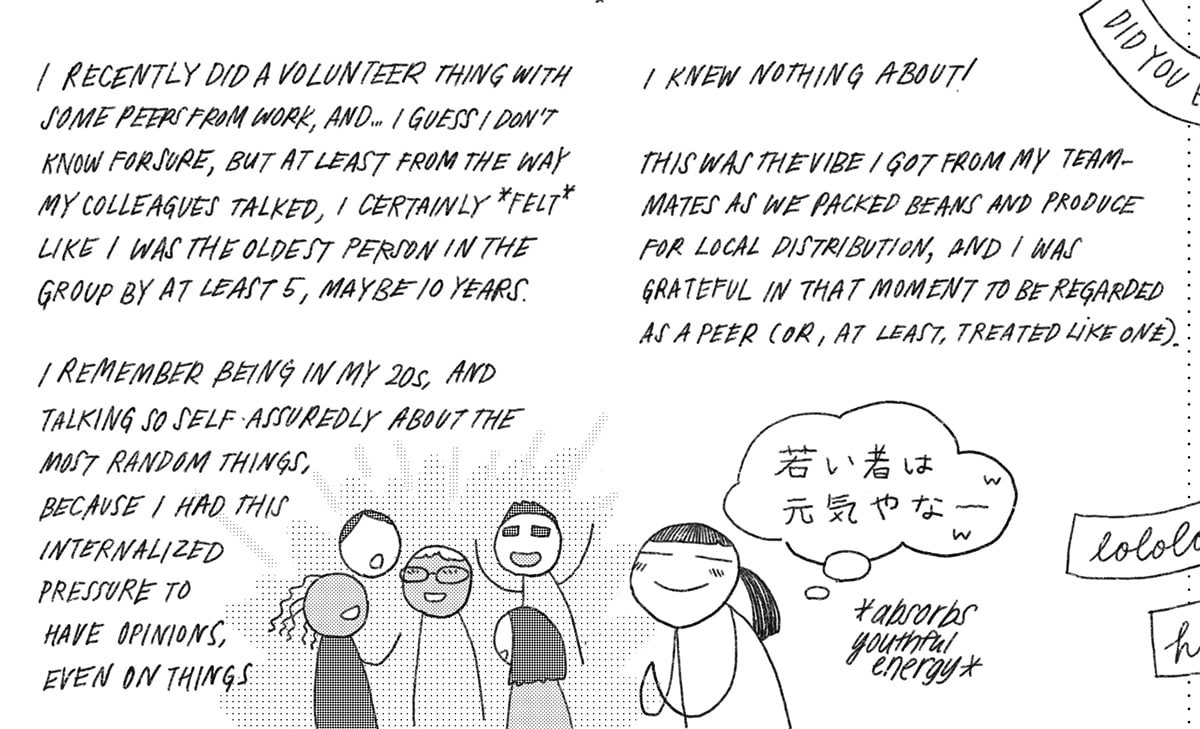 I RECENTLY DID A VOLUNTEER THING WITH
SOME PEEPS FROM WORK, AND... I GUESS I DON'T
KNOW FOR SURE, BUT AT LEAST FROM THE WAY
MY COLLEAGUES TALKED, I CERTAINLY *FELT*
LIKE I WAS THE OLDEST PERSON IN THE
GROUP BY AT LEAST 5, MAYBE 10 YEARS.
I REMEMBER BEING IN MY 20s, AND
TALKING SO SELF-ASSUREDLY ABOUT THE
MOST RANDOM THINGS,
BECAUSE I HAD THIS
INTERNALIZED
PRESSURE TO
HAVE OPINIONS,
EVEN ON THINGS
I KNEW NOTHING ABOUT!
THIS WAS THE VIBE I GOT FROM MY TEAM-
MATES AS WE PACKED BEANS AND PRODUCE
FOR LOCAL DISTRIBUTION, AND I WAS
GRATEFUL IN THAT MOMENT TO BE REGARDED
AS A PEER (OR, AT LEAST, TREATED LIKE ONE).
若い者は
元気やなー
w
w
*absorbs
youthful
energy*
DID YOU
lololo